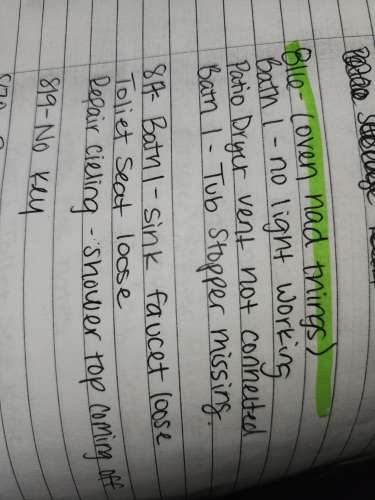 816- (oven had things)
Bath 1 - no light working
Patio Dryer vent not connected
Bath 1 - Tub Stopper missing.
817- Bath 1 - Sink faucet loose
Toliet Seat loose
Repair cieling - Shower top coming off
819- No key